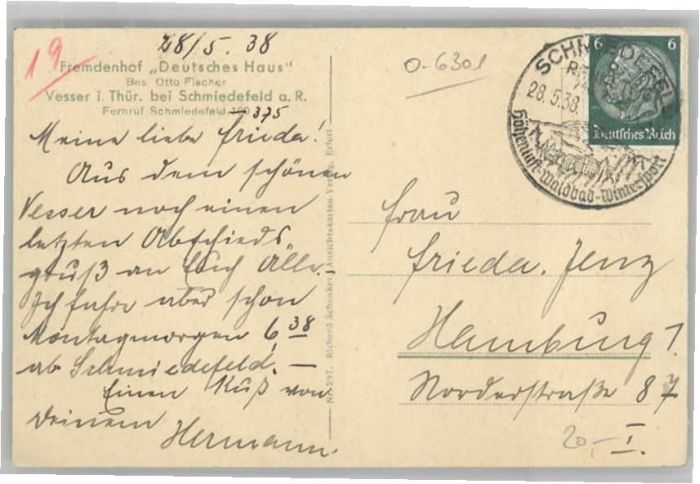 28/5. 38
19
Fremdenhof „Deutsches Haus"
Bes. Otto Fischer
Vesser i. Thür. bei Schmiedefeld a. R.
Fernruf Schmiedefeld
375
Meine liebe Frieda!
Aus dem schönen
Vesser noch einen
letzten Abschieds
gruß an Euch Alle.
Ich fahre aber schon
Montagmorgen 6 38
ab Schmiedefeld. —
Einen Kuß von
Deinem
Hermann.
Nr. 297. Richard Schenker, Ansichtskarten-Verlag, Erfurt
0-6301
SCHMIEDEFELD
28.5.38
Höhenluft-Waldbad-Wintersport
6 6
Deutsches Reich
Frau
Frieda Jenz
Hamburg 1.
Norderstraße 87
20,- I.